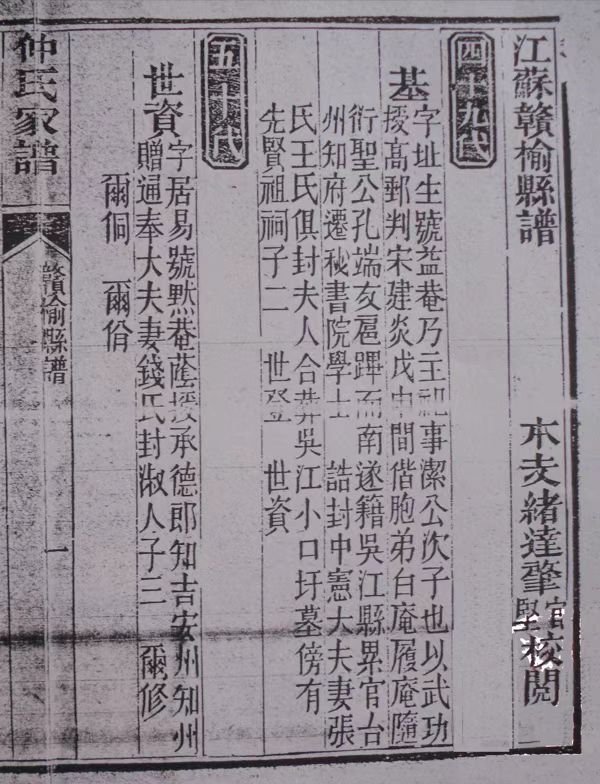 江蘇贛榆縣譜
本支緒達肇堅官校閱
四十九氏
基字址生號益菴乃主祀事潔公次子也以武功
授高郵判宋建炎戊申間偕胞弟白庵履庵隨
衍聖公孔端友扈蹕而南遂籍吳江縣累官台
州知府遷秘書院學士 誥封中憲大夫妻張
氏王氏俱封夫人合葬吳江小口圩墓傍有
先賢祖祠子二 世登 世資
五十氏
世資字居易號默菴蔭授承德郎知吉安州知州
贈通奉大夫妻錢氏封淑人子三 爾修
爾侗 爾佾
仲氏家譜
贛榆縣譜
一